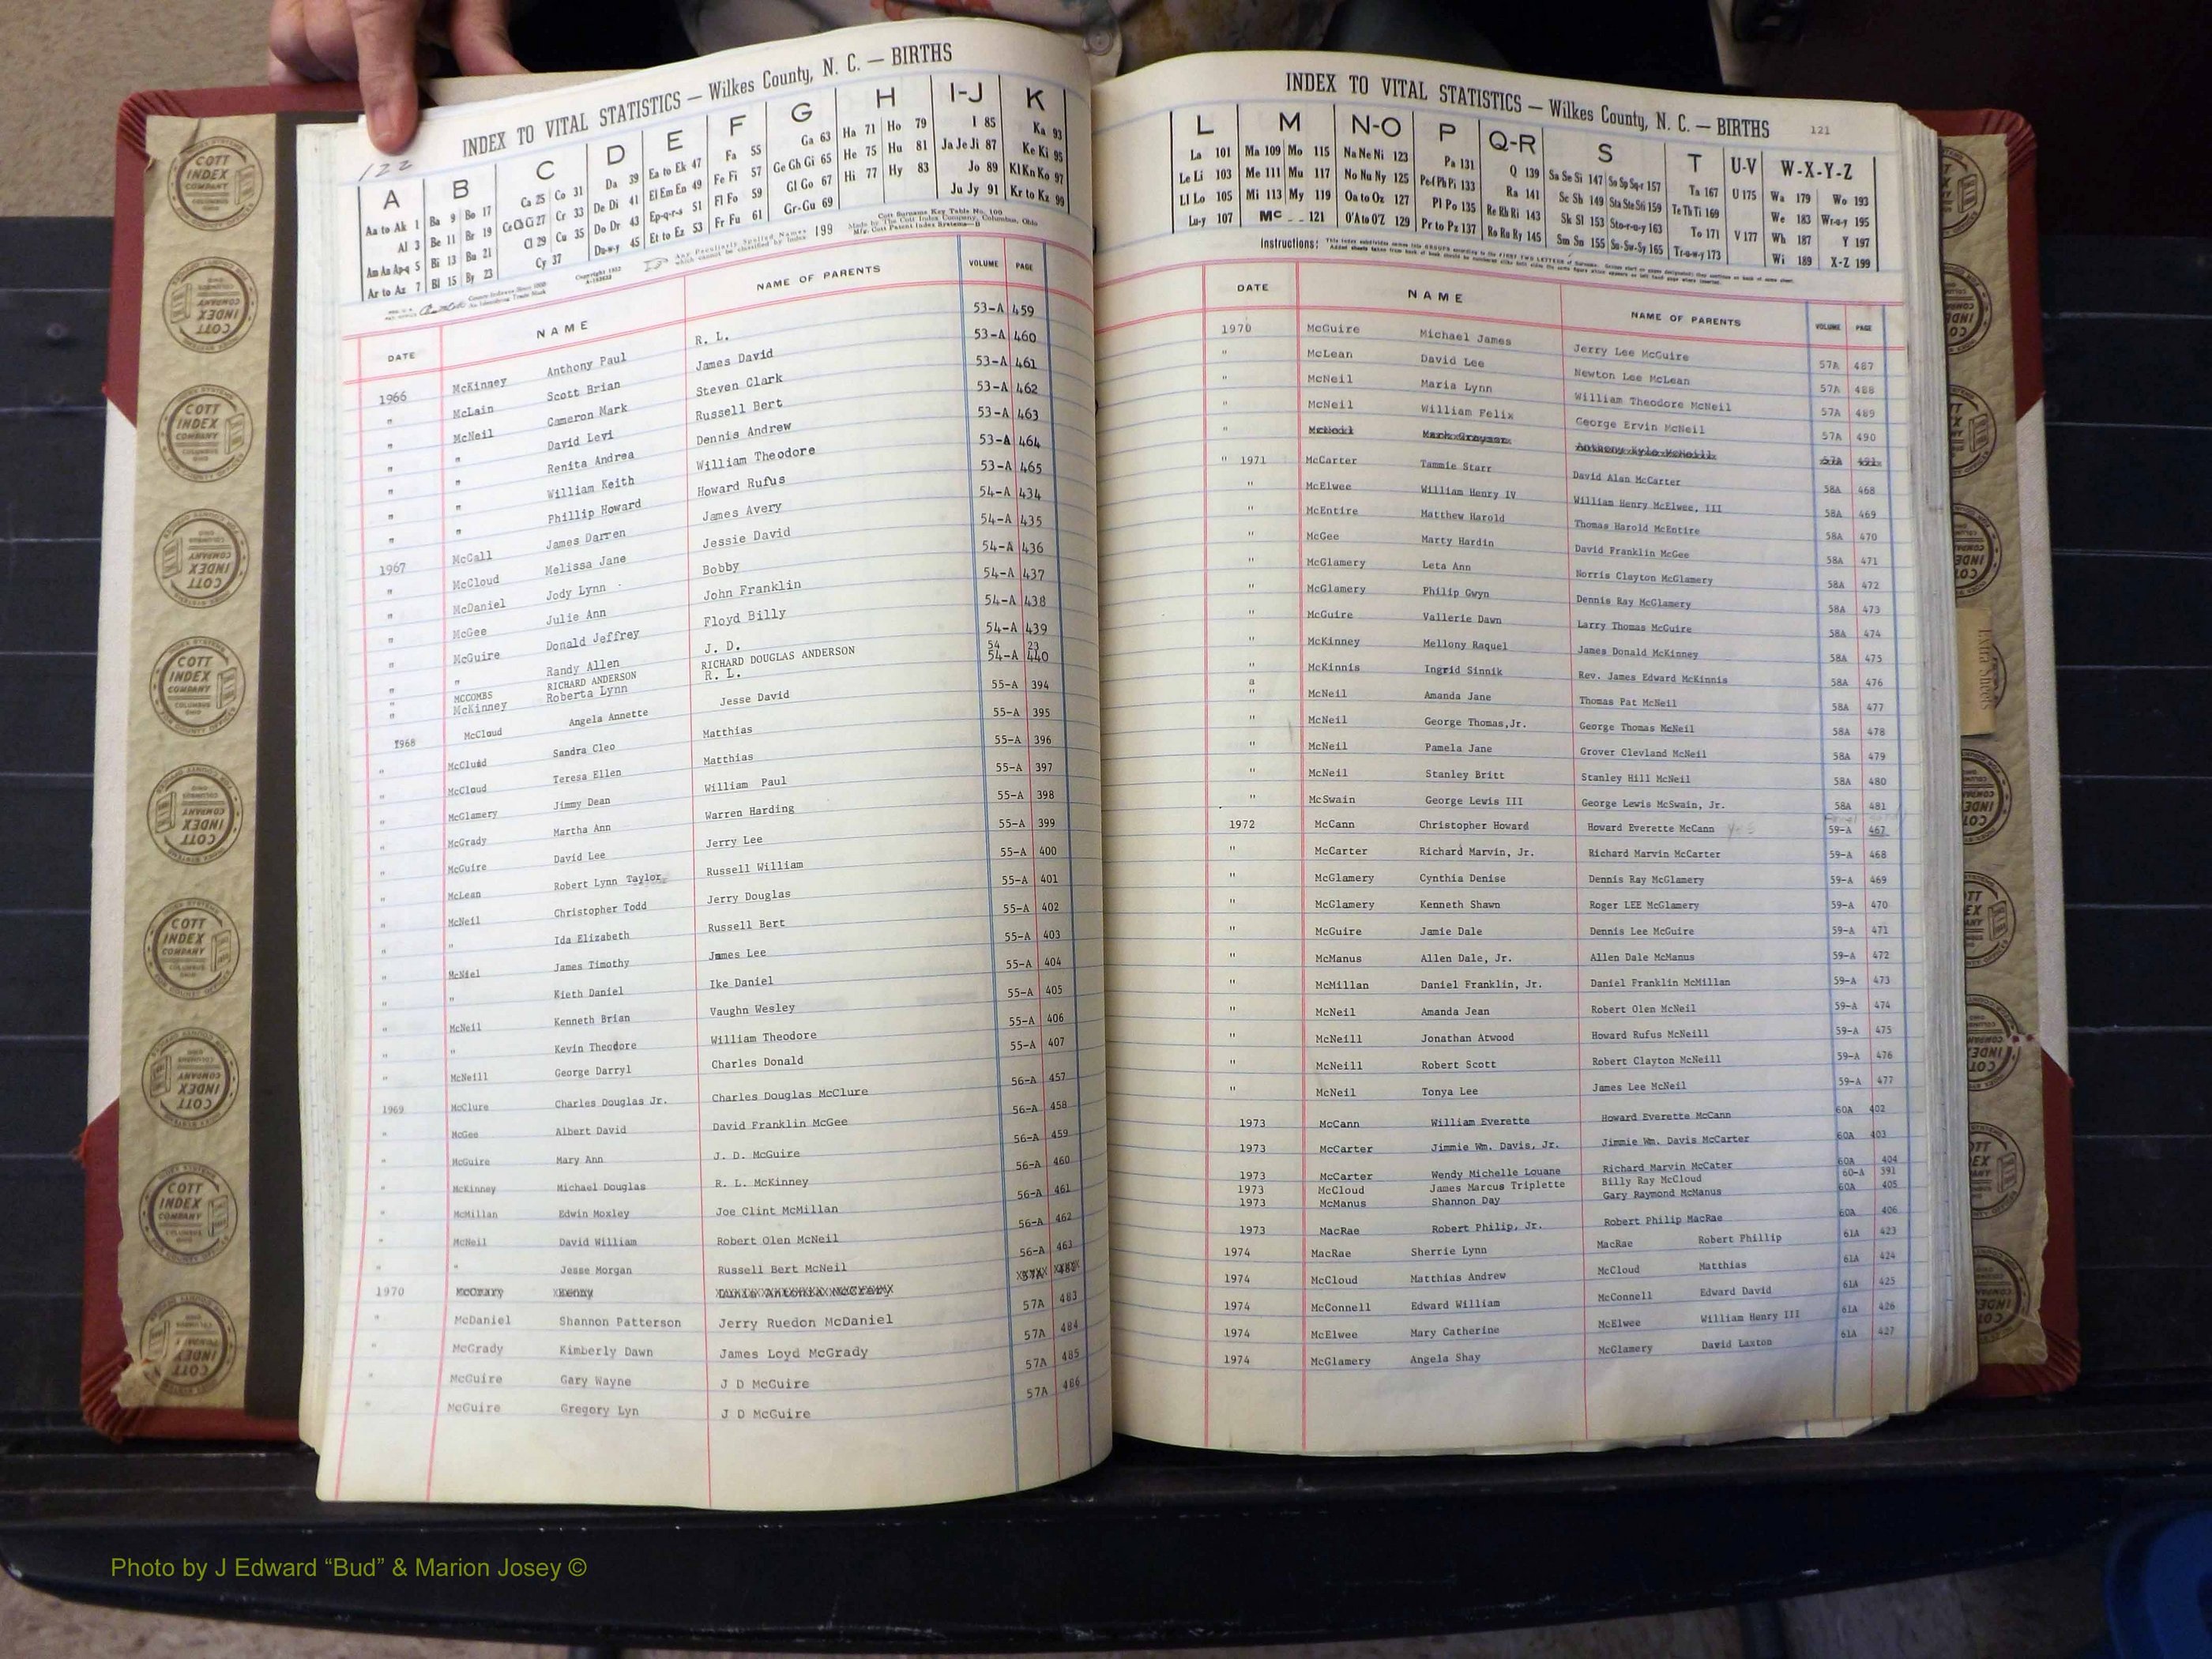 122
INDEX TO VITAL STATISTICS — Wilkes County, N. C. — BIRTHS
A B C D E F G H I-J K
Aa to Ak 1 Ba 9 Bo 17 Ca 25 Co 31 Da 39 Ea to Ek 47 Fa 55 Ga 63 Ha 71 Ho 79 I 85 Ka 93
Al 3 Be 11 Br 19 Ce Ch Ci 27 Cr 33 De Di 41 El Em En 49 Fe Fi 57 Ge Gh Gi 65 He 75 Hu 81 Ja Je Ji 87 Ke Ki 95
Am An Ap-q 5 Bi 13 Bu 21 Cl 29 Cu 35 Do Dr 43 Ep-q-r-s 51 Fl Fo 59 Gl Go 67 Hi 77 Hy 83 Jo 89 Kl Kn Ko 97
Ar to Az 7 Bl 15 By 23 Cy 37 Du-w-y 45 Et to Ez 53 Fr Fu 61 Gr-Gu 69 Ju Jy 91 Kr to Kz 99
Any Peculiarly Spelled Names which cannot be classified by Index 199
Cott Surname Key Table No. 100
Made by The Cott Index Company, Columbus, Ohio
DATE NAME NAME OF PARENTS VOLUME PAGE
1966 McKinney Anthony Paul R. L. 53-A 459
" McLain Scott Brian James David 53-A 460
" McNeil Cameron Mark Steven Clark 53-A 461
" " David Levi Russell Bert 53-A 462
" " Renita Andrea Dennis Andrew 53-A 463
" " William Keith William Theodore 53-A 464
" " Phillip Howard Howard Rufus 53-A 465
1967 McCall James Darren James Avery 54-A 434
" McCloud Melissa Jane Jessie David 54-A 435
" McDaniel Jody Lynn Bobby 54-A 436
" McGee Julie Ann John Franklin 54-A 437
" McGuire Donald Jeffrey Floyd Billy 54-A 438
" " Randy Allen J. D. 54-A 439
" MCCOMBS RICHARD ANDERSON RICHARD DOUGLAS ANDERSON 54 23
" McKinney Roberta Lynn R. L. 54-A 440
1968 McCloud Angela Annette Jesse David 55-A 394
" McCloud Sandra Cleo Matthias 55-A 395
" McCloud Teresa Ellen Matthias 55-A 396
" McGlamery Jimmy Dean William Paul 55-A 397
" McGrady Martha Ann Warren Harding 55-A 398
" McGuire David Lee Jerry Lee 55-A 399
" McLean Robert Lynn Taylor Russell William 55-A 400
" McNeil Christopher Todd Jerry Douglas 55-A 401
" " Ida Elizabeth Russell Bert 55-A 402
" McNiel James Timothy James Lee 55-A 403
" " Kieth Daniel Ike Daniel 55-A 404
" McNeil Kenneth Brian Vaughn Wesley 55-A 405
" " Kevin Theodore William Theodore 55-A 406
" McNeill George Darryl Charles Donald 55-A 407
1969 McClure Charles Douglas Jr. Charles Douglas McClure 56-A 457
" McGee Albert David David Franklin McGee 56-A 458
" McGuire Mary Ann J. D. McGuire 56-A 459
" McKinney Michael Douglas R. L. McKinney 56-A 460
" McMillan Edwin Moxley Joe Clint McMillan 56-A 461
" McNeil David William Robert Olen McNeil 56-A 462
" " Jesse Morgan Russell Bert McNeil 56-A 463
1970 McCrary Kenny McCrary 57A 482
" McDaniel Shannon Patterson Jerry Ruedon McDaniel 57A 483
" McGrady Kimberly Dawn James Loyd McGrady 57A 484
" McGuire Gary Wayne J D McGuire 57A 485
" McGuire Gregory Lyn J D McGuire 57A 486
INDEX TO VITAL STATISTICS — Wilkes County, N. C. — BIRTHS 121
L M N-O P Q-R S T U-V W-X-Y-Z
La 101 Ma 109 Mo 115 Na Ne Ni 123 Pa 131 Q 139 Sa Se Si 147 So Sp Sq-r 157 Ta 167 U 175 Wa 179 Wo 193
Le Li 103 Me 111 Mu 117 No Nu Ny 125 Pe-f Ph Pi 133 Ra 141 Sc Sh 149 Sta Ste Sti 159 Te Th Ti 169 We 183 Wr-u-y 195
Ll Lo 105 Mi 113 My 119 Oa to Oz 127 Pl Po 135 Re Rh Ri 143 Sk Sl 153 Sto-r-u-y 163 To 171 V 177 Wh 187 Y 197
Lu-y 107 Mc 121 O'A to O'Z 129 Pr to Pz 137 Ro Ru Ry 145 Sm Sn 155 Su-Sw-Sy 165 Tr-u-w-y 173 Wi 189 X-Z 199
Instructions:
DATE NAME NAME OF PARENTS VOLUME PAGE
1970 McGuire Michael James Jerry Lee McGuire 57A 487
" McLean David Lee Newton Lee McLean 57A 488
" McNeil Maria Lynn William Theodore McNeil 57A 489
" McNeil William Felix George Ervin McNeil 57A 490
" McNeil Mark Anthony Kyle McNeill 57A 491
" 1971 McCarter Tammie Starr David Alan McCarter 58A 468
" McElwee William Henry IV William Henry McElwee, III 58A 469
" McEntire Matthew Harold Thomas Harold McEntire 58A 470
" McGee Marty Hardin David Franklin McGee 58A 471
" McGlamery Leta Ann Norris Clayton McGlamery 58A 472
" McGlamery Philip Gwyn Dennis Ray McGlamery 58A 473
" McGuire Vallerie Dawn Larry Thomas McGuire 58A 474
" McKinney Mellony Raquel James Donald McKinney 58A 475
" McKinnis Ingrid Sinnik Rev. James Edward McKinnis 58A 476
" McNeil Amanda Jane Thomas Pat McNeil 58A 477
" McNeil George Thomas,Jr. George Thomas McNeil 58A 478
" McNeil Pamela Jane Grover Clevland McNeil 58A 479
" McNeil Stanley Britt Stanley Hill McNeil 58A 480
" McSwain George Lewis III George Lewis McSwain, Jr. 58A 481
1972 McCann Christopher Howard Howard Everette McCann 59-A 467
" McCarter Richard Marvin, Jr. Richard Marvin McCarter 59-A 468
" McGlamery Cynthia Denise Dennis Ray McGlamery 59-A 469
" McGlamery Kenneth Shawn Roger LEE McGlamery 59-A 470
" McGuire Jamie Dale Dennis Lee McGuire 59-A 471
" McManus Allen Dale, Jr. Allen Dale McManus 59-A 472
" McMillan Daniel Franklin, Jr. Daniel Franklin McMillan 59-A 473
" McNeil Amanda Jean Robert Olen McNeil 59-A 474
" McNeill Jonathan Atwood Howard Rufus McNeill 59-A 475
" McNeill Robert Scott Robert Clayton McNeill 59-A 476
" McNeil Tonya Lee James Lee McNeil 59-A 477
1973 McCann William Everette Howard Everette McCann 60A 402
1973 McCarter Jimmie Wm. Davis, Jr. Jimmie Wm. Davis McCarter 60A 403
1973 McCarter Wendy Michelle Louane Richard Marvin McCater 60A 404
1973 McCloud James Marcus Triplette Billy Ray McCloud 60-A 391
1973 McManus Shannon Day Gary Raymond McManus 60A 405
1973 MacRae Robert Philip, Jr. Robert Philip MacRae 60A 406
1974 MacRae Sherrie Lynn MacRae Robert Phillip 61A 423
1974 McCloud Matthias Andrew McCloud Matthias 61A 424
1974 McConnell Edward William McConnell Edward David 61A 425
1974 McElwee Mary Catherine McElwee William Henry III 61A 426
1974 McGlamery Angela Shay McGlamery David Laxton 61A 427
COTT INDEX COMPANY COLUMBUS OHIO
Photo by J Edward “Bud” & Marion Josey ©